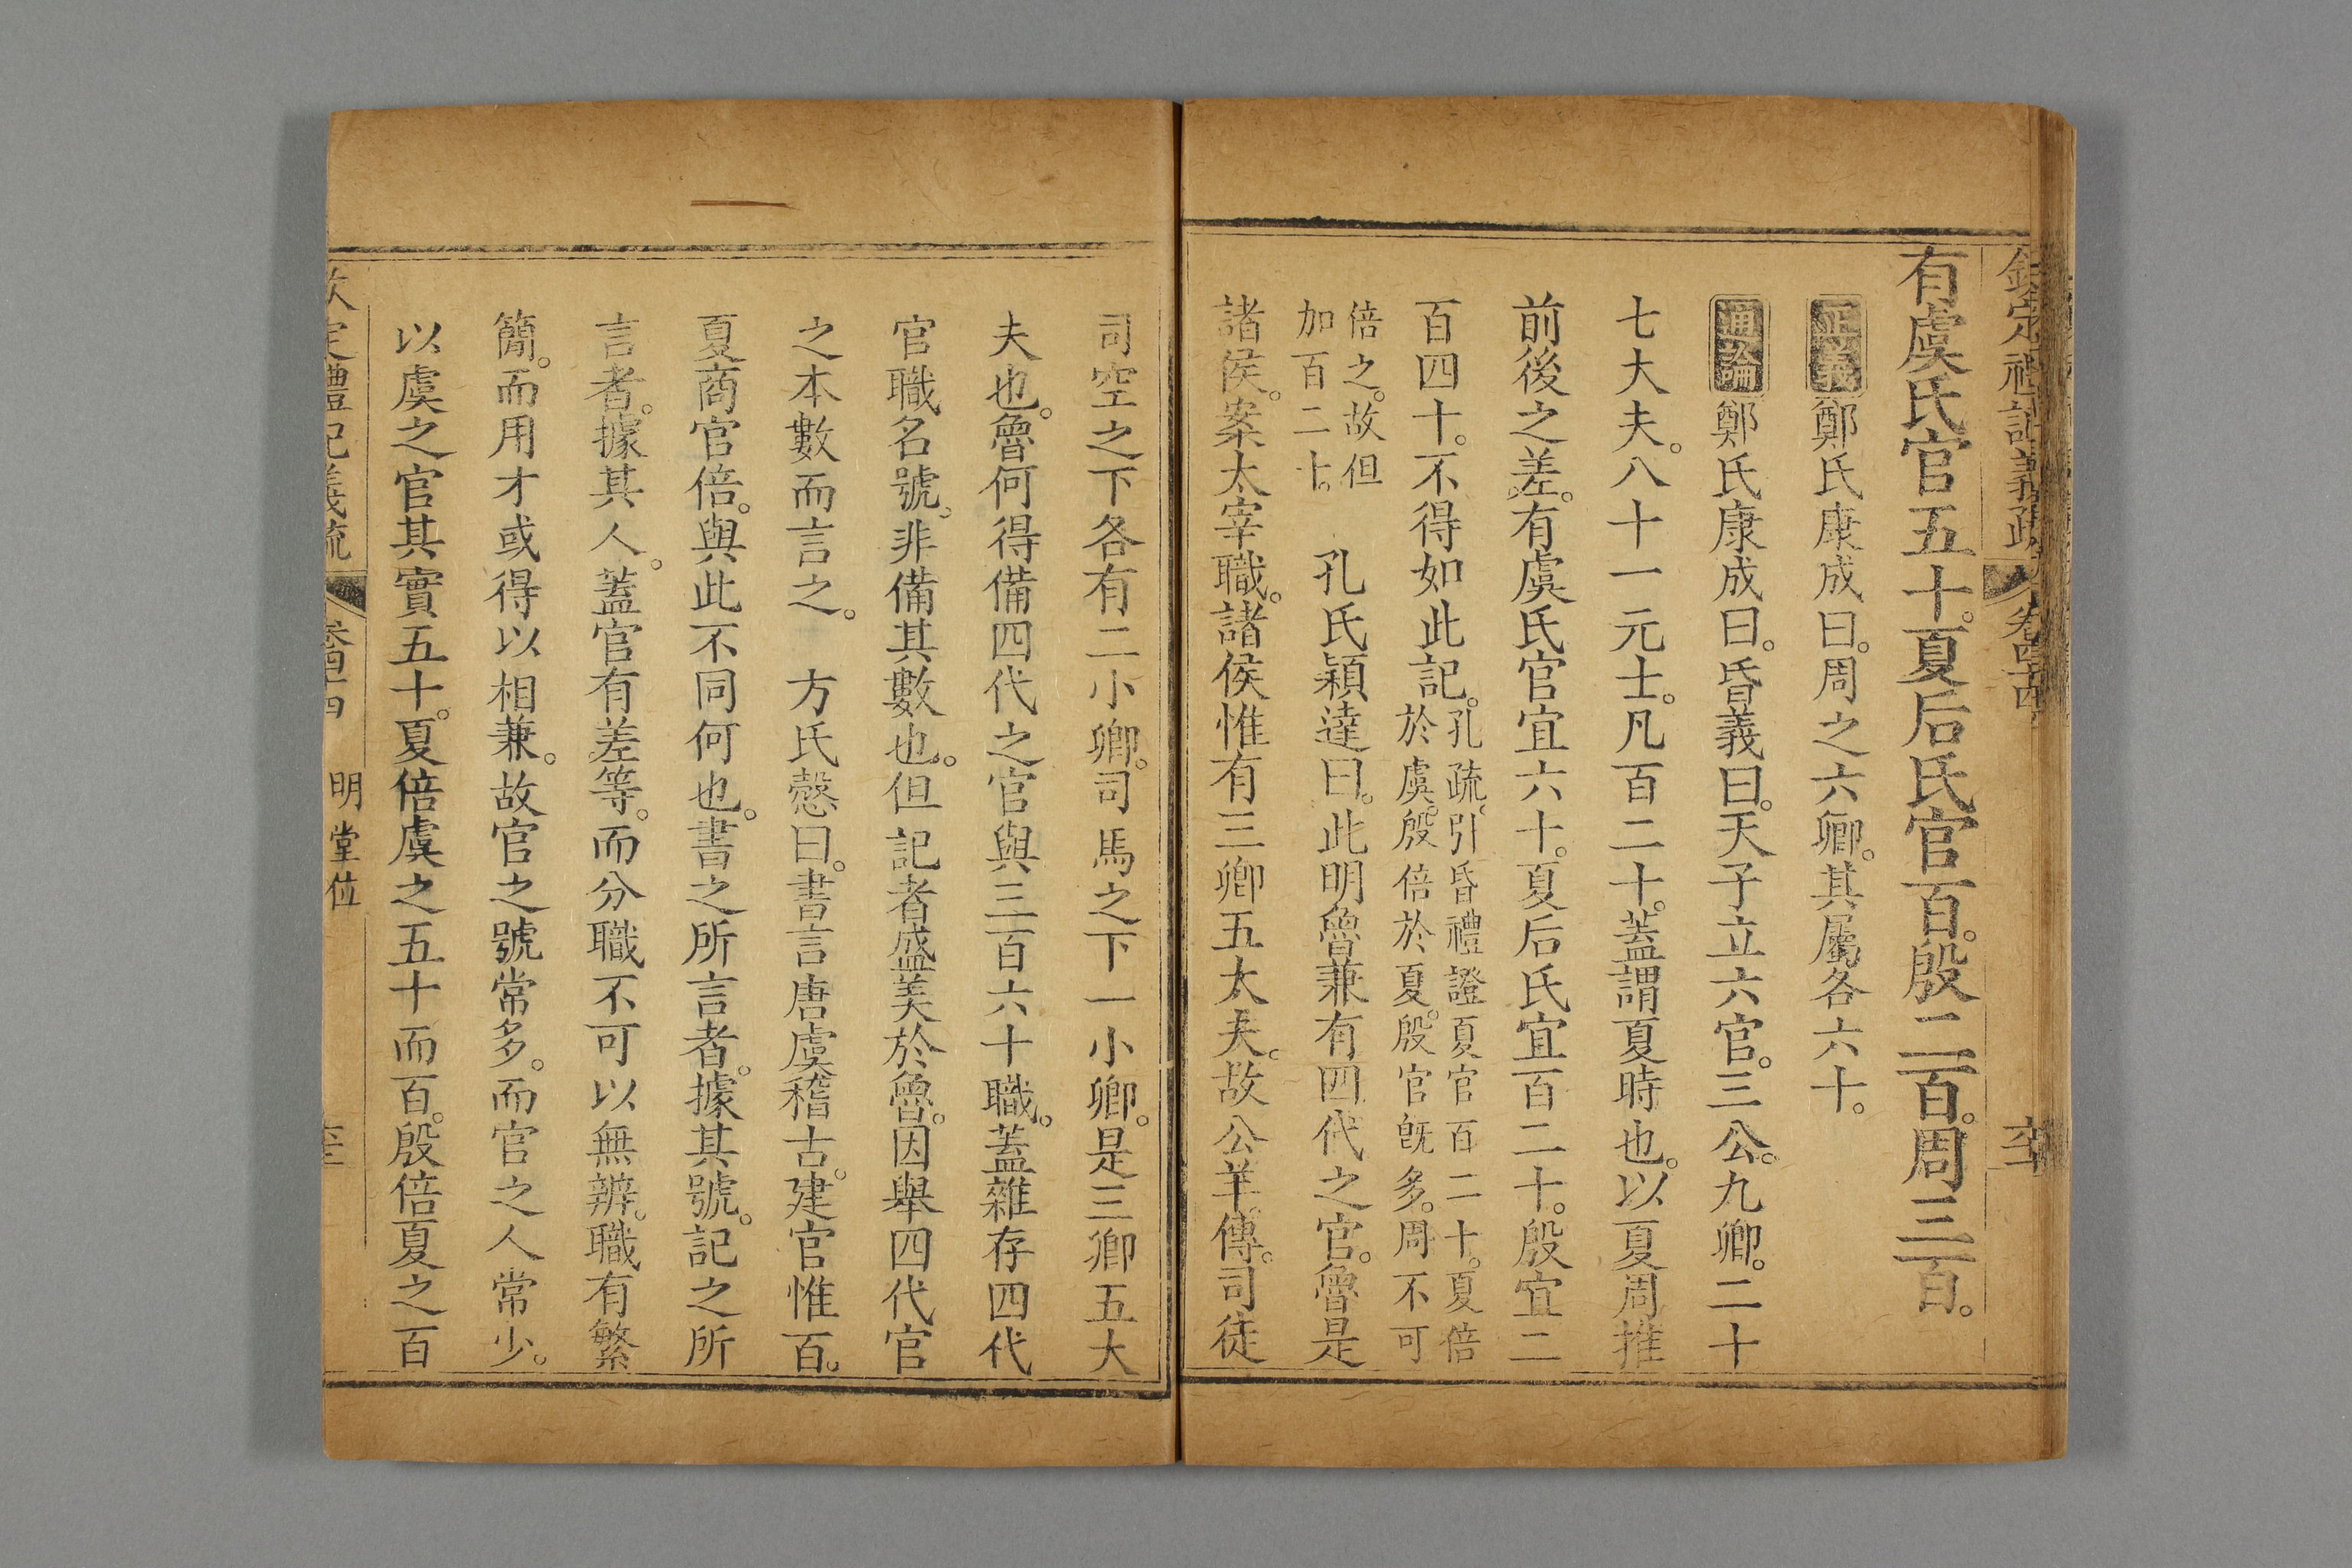 欽定禮記義疏 卷四十四
有虞氏官五十。夏后氏官百。殷二百。周三百。
正義鄭氏康成曰。周之六卿。其屬各六十。
通論鄭氏康成曰。昏義曰。天子立六官。三公。九卿。二十
七大夫。八十一元士。凡百二十。蓋謂夏時也。以夏周推
前後之差。有虞氏官宜六十。夏后氏宜百二十。殷宜二
百四十。不得如此記。孔疏。引昏禮證夏官百二十。夏倍
於虞。殷倍於夏。殷官旣多。周不可
倍之。故但
加百二十。 孔氏穎達曰。此明魯兼有四代之官。魯是
諸侯。案太宰職。諸侯惟有三卿五大夫。故公羊傳。司徒
司空之下各有二小卿。司馬之下一小卿。是三卿五大
夫也。魯何得備四代之官與三百六十職。蓋雜存四代
官職名號。非備其數也。但記者盛美於魯。因舉四代官
之本數而言之。 方氏慤曰。書言唐虞稽古。建官惟百。
夏商官倍。與此不同何也。書之所言者。據其號。記之所
言者。據其人。蓋官有差等。而分職不可以無辨。職有繁
簡。而用才或得以相兼。故官之號常多。而官之人常少。
以虞之官其實五十。夏倍虞之五十而百。殷倍夏之百
欽定禮記義疏 卷四十四 明堂位